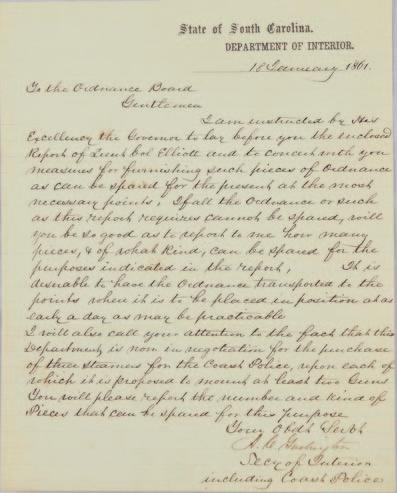 State of South Carolina.
DEPARTMENT OF INTERIOR.
18 January 1861.
To the Ordnance Board
Gentlemen
I am instructed by His
Excellency the Governor to lay before you the enclosed
Report of Lieut Col Elliott and to concert with you
measures for furnishing such pieces of Ordnance
as can be spared for the present at the most
necessary points, If all the Ordnance or such
as this report requires cannot be spared, will
you be so good as to report to me how many
pieces, & of what kind, can be spared for the
purposes indicated in the report, It is
desirable to have the Ordnance transported to the
points where it is to be placed in position at as
early a day as may be practicable
I will also call your attention to the fact that this
Department is now in negotiation for the purchase
of three steamers for the Coast Police, upon each of
which it is proposed to mount at least two Guns
You will please report the number and kind of
Pieces that can be spared for this purpose
Your Obdt Servt
A. C. Garlington
Secy of Interior
including Coast Police